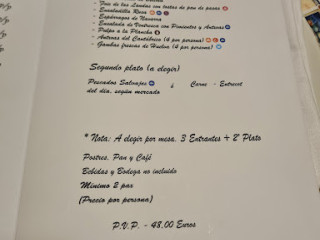 - Foie de las Landas con tostas de pan de pasas
- Ensaladilla Rusa
- Espárragos de Navarra
- Ensalada de Ventresca con Pimientos y Anchoas
- Pulpo a la Plancha
- Anchoas del Cantábrico (4 por persona)
- Gambas frescas de Huelva (4 por persona)
Segundo plato (a elegir)
Pescados Salvajes ó Carne - Entrecot
del día, según mercado
* Nota: A elegir por mesa, 3 Entrantes + 2º Plato
Postres, Pan y Café
Bebidas y Bodega no incluido
Mínimo 2 pax
(Precio por persona)
P.V.P. - 48,00 Euros